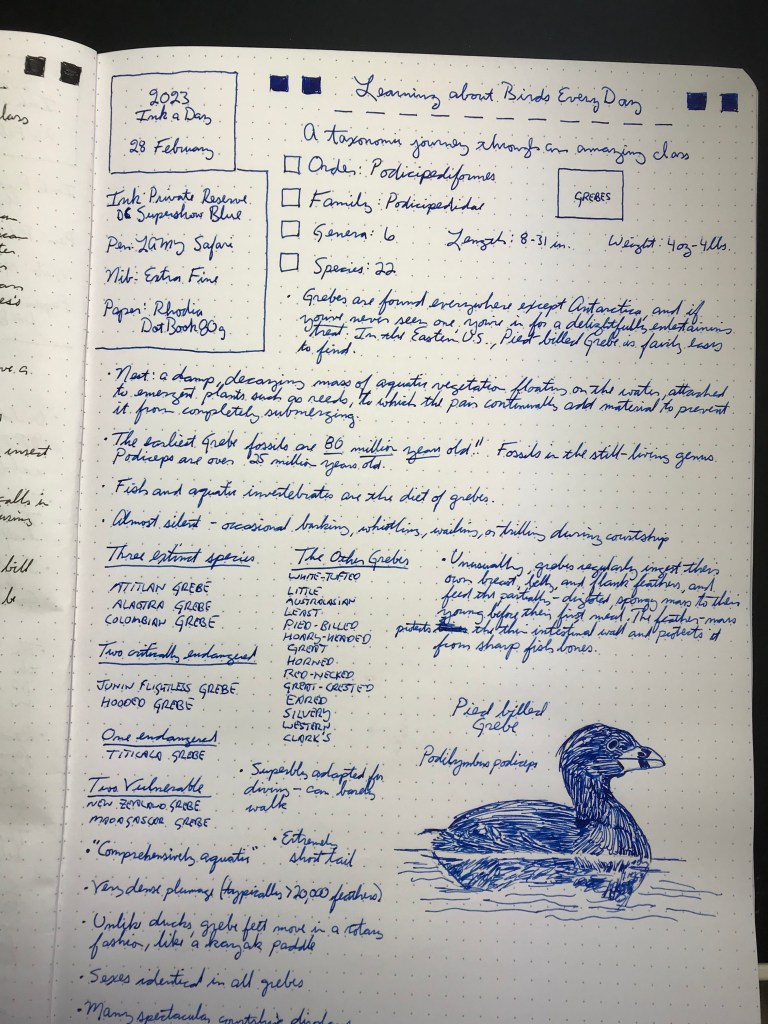 2023
Ink a Day
28 February
Ink: Private Reserve
DC Supershow Blue
Pen: LAMY Safari
Nib: Extra Fine
Paper: Rhodia
DotBook 80g
Learning about Birds Every Day
A taxonomic journey through an amazing class
Order: Podicipediformes
Family: Podicipedidae
GREBES
Genera: 6 Length: 8-31 in. Weight: 4oz-4lbs.
Species: 22
• Grebes are found everywhere except Antarctica, and if
you've never seen one, you're in for a delightfully entertaining
treat. In the Eastern U.S., Pied-billed Grebe is fairly easy
to find.
• Nest: a damp, decaying mass of aquatic vegetation floating on the water, attached
to emergent plants such as reeds, to which the pair continually add material to prevent
it from completely submerging.
• The earliest Grebe fossils are 80 million years old!! Fossils in the still-living genus
Podiceps are over 25 million years old.
• Fish and aquatic invertebrates are the diet of grebes.
• Almost silent - occasional barking, whistling, wailing, or trilling during courtship
Three extinct species
ATITLAN GREBE
ALAOTRA GREBE
COLOMBIAN GREBE
Two critically endangered
JUNIN FLIGHTLESS GREBE
HOODED GREBE
One endangered
TITICACA GREBE
Two Vulnerable
NEW ZEALAND GREBE
MADAGASCAR GREBE
The Other Grebes
WHITE-TUFTED
LITTLE
AUSTRALASIAN
LEAST
PIED-BILLED
HOARY-HEADED
GREAT
HORNED
RED-NECKED
GREAT-CRESTED
EARED
SILVERY
WESTERN
CLARK'S
• Unusually, grebes regularly ingest their
own breast, belly, and flank feathers, and
feed the partially-digested, spongy mass to their
young before their first meal. The feather-mass
protects the thin intestinal wall and protects it
from sharp fish bones.
Pied billed
Grebe
Podilymbus podiceps
• Superbly adapted for
diving - can barely
walk
• "Comprehensively aquatic"
• Extremely
short tail
• Very dense plumage (typically >20,000 feathers)
• Unlike ducks, grebe feet move in a rotary
fashion, like a kayak paddle
• Sexes identical in all grebes
• Many spectacular courtship displays